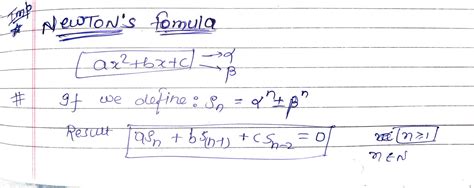 Imp
* NEWTON's fomula
ax²+bx+c → α
→ β
# If we define: Sₙ = αⁿ ± βⁿ
Result aSₙ + bSₙ₋₁ + cSₙ₋₂ = 0 n≥1
n∈N